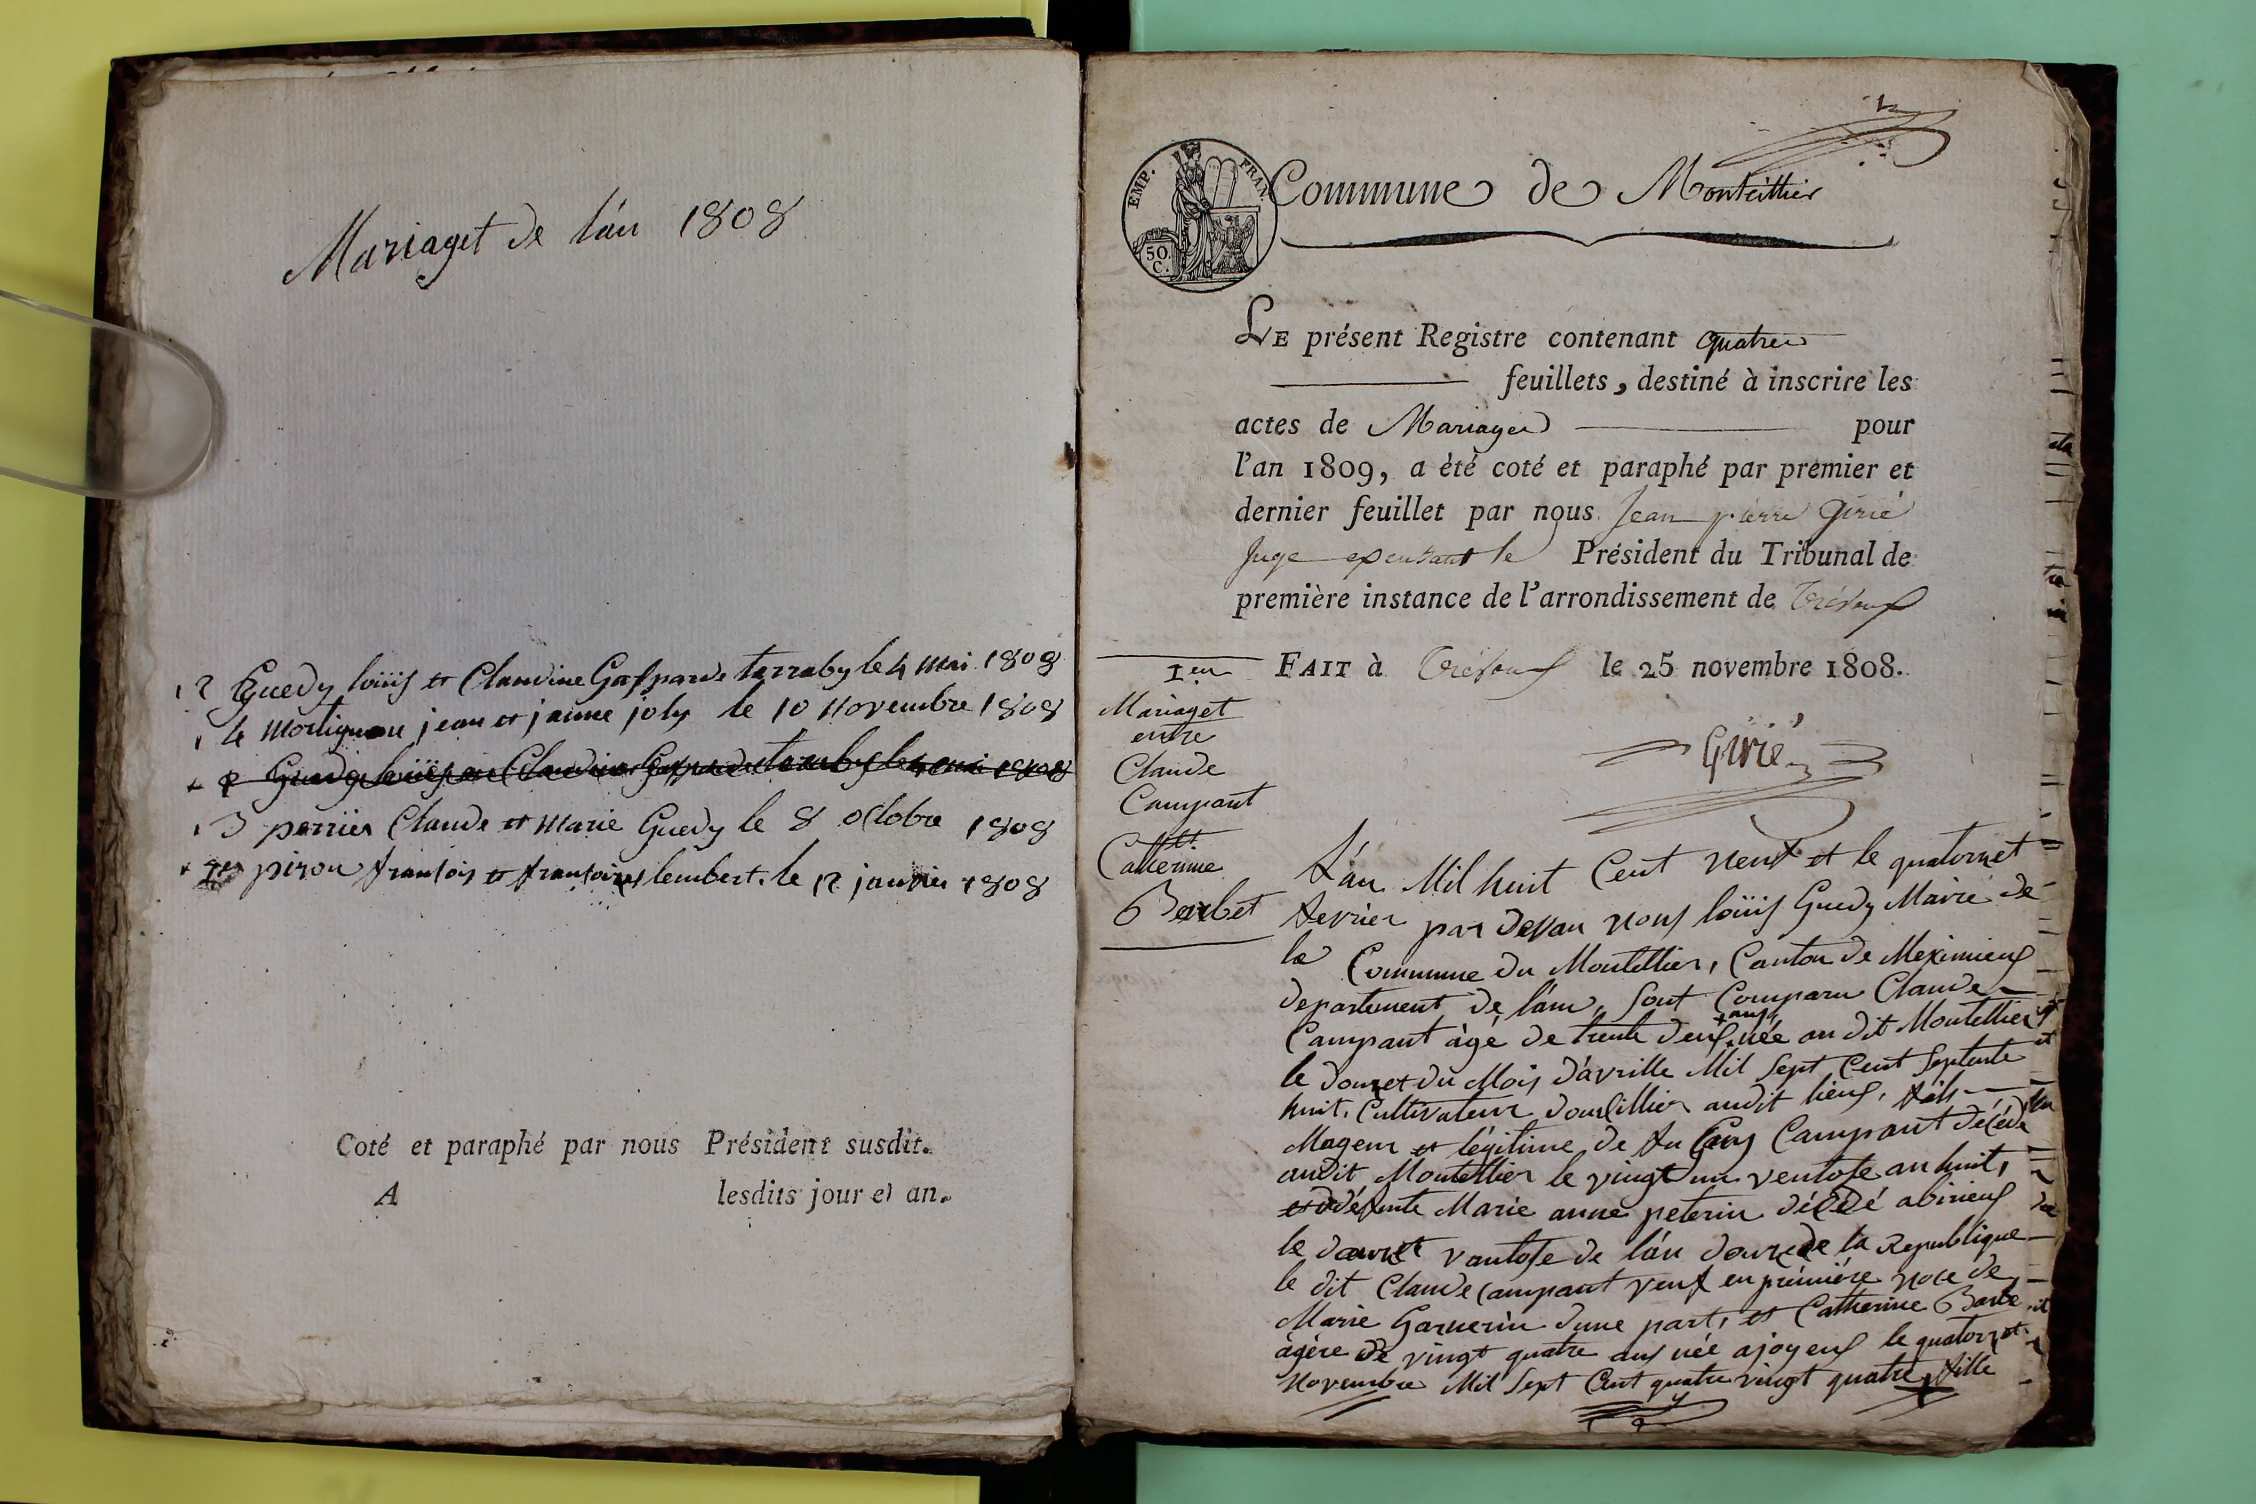 Mariaget de l'án 1808
2 Guedy loüis et Claudine Gaspande terraby le 4 mai 1808
4 Mortignau jean et janne joly le 10 Novembre 1808
3 perrier Claude et Marie Guedy le 8 octobre 1808
1er piron franfois et franfoise lembert. le 12 janvier 1808
Coté et paraphé par nous Président susdit.
A lesdits jour et an.
EMP. FRAN.
50 C.
Commune de Montcillier
LE présent Registre contenant quatre
feuillets, destiné à inscrire les
actes de Mariages pour
l'an 1809, a été coté et paraphé par premier et
dernier feuillet par nous Jean pierre Girié
Juge le Président du Tribunal de
première instance de l'arrondissement de Trévoux
FAIT à Trévoux le 25 novembre 1808.
Girié
1er
Mariaget
entre
Claude
Campant
et
Catherine
Barbet
L'án Mil huit Cent neuf et le quatorzet
fevrier par devan nous loüis Guedy Maire de
la Commune du Montellier, Canton de Meximieux
departement de l'áin, sont Comparu Claude
Campant àgé de trente deux ans née au dit Montellier
le douzet du Mois d'ávrille Mil Sept Cent Septente
huit, Cultivateur domicillier audit lieux, fils
Mageur et légitime de fu Campant décédé
audit Montellier le vingt un ventose an huit,
et défunte Marie anne peterin décédé abirieux
le douzet vantose de l'án douze de la Republique
le dit Claude Campant veuf en première noce de
Marie Garnerin d'une part, et Catherine Barbe
agére de vingt quatre ans née ajoyeux le quatorzet
Novembre Mil Sept Cent quatre vingt quatre, fille